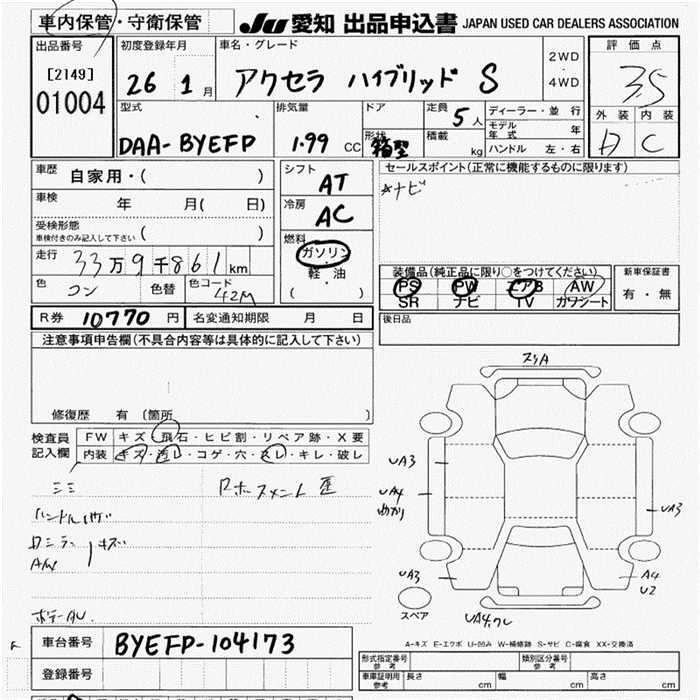 車内保管・守衛保管
JU 愛知 出品申込書 JAPAN USED CAR DEALERS ASSOCIATION
出品番号
[2149]
01004
初度登録年月
26 1月
車名・グレード
アクセラ ハイブリッド S
2WD
・
4WD
評価点
3.5
外装 内装
A C
型式
DAA-BYEFP
排気量
1.99 CC
ドア
形状
箱型
定員 5人
積載 kg
ディーラー・並行
モデル年式 年
ハンドル 左・右
車歴 自家用・( )
車検 年 月( 日)
受検形態
車検付きのみ記入して下さい ( )
走行 33万9千861km
色 コン 色替 色コード 42M
シフト
AT
冷房
AC
燃料
ガソリン
・
軽油
・
( )
セールスポイント(正常に機能するものに限ります)
*ナビ
装備品(純正品に限り○をつけてください)
PS PW エアB AW
SR ナビ TV カワシート
新車保証書
有・無
R券 10770 円 名変通知期限 月 日
後日品
注意事項申告欄(不具合内容等は具体的に記入して下さい)
修復歴 有 〔箇所 〕
検査員
記入欄
FW キズ・飛石・ヒビ割・リペア跡・X要
内装 キズ・汚レ・コゲ・穴・スレ・キレ・破レ
A/W
スリA
UA3
UA4
UA3
UA3
A4
U2
スペア
A-キズ E-エクボ U-凹み W-補修跡 S-サビ C-腐食 XX-交換済
車台番号 BYEFP-104173
登録番号
形式指定番号
参考
類別区分番号
参考
車庫証明用
参考
長さ cm 幅 cm 高さ cm